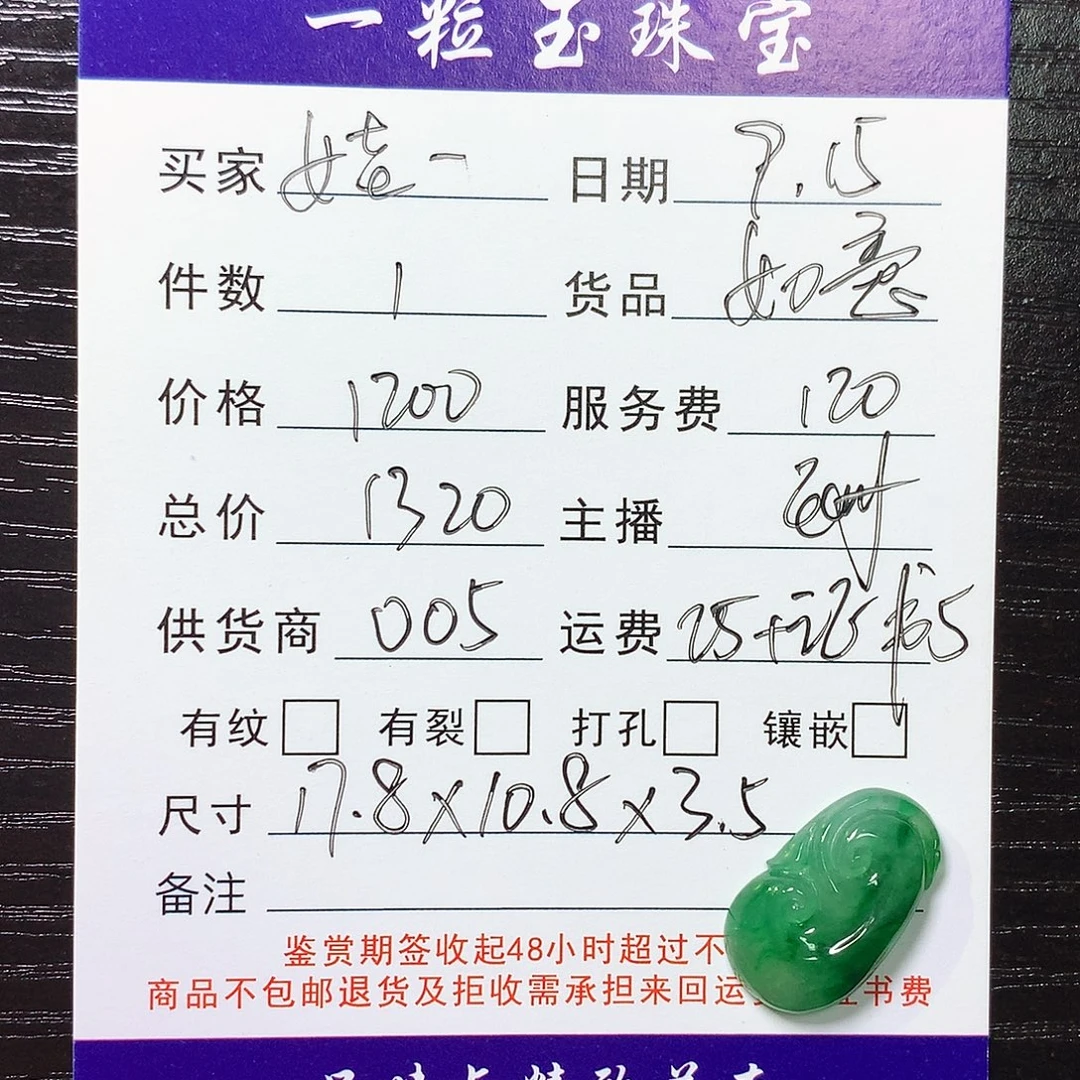 一粒玉珠宝
买家 娃一 日期 7.15
件数 1 货品 如意
价格 1200 服务费 120
总价 1320 主播
供货商 005 运费 25+证书5
有纹 有裂 打孔 镶嵌
尺寸 17.8×10.8×3.5
备注
鉴赏期签收起48小时超过不
商品不包邮退货及拒收需承担来回运 书费